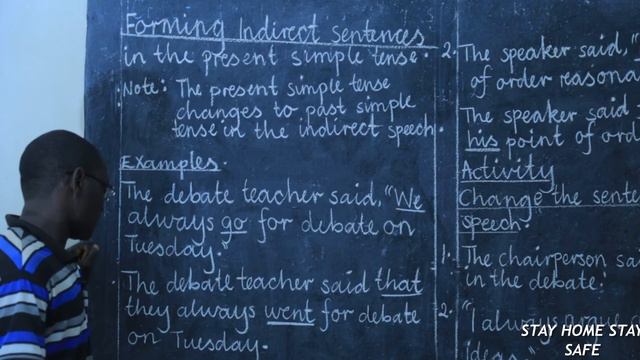 Forming Indirect Sentences
in the present simple tense.
Note: The present simple tense
changes to past simple
tense in the indirect speech.
Examples.
The debate teacher said, "We
always go for debate on
Tuesday."
The debate teacher said that
they always went for debate
on Tuesday.
2. The speaker said, "
of order
The speaker said
his point of
Activity
Change the
speech.
1. The chairperson
in the debate.
2. "I always
STAY HOME STAY
SAFE